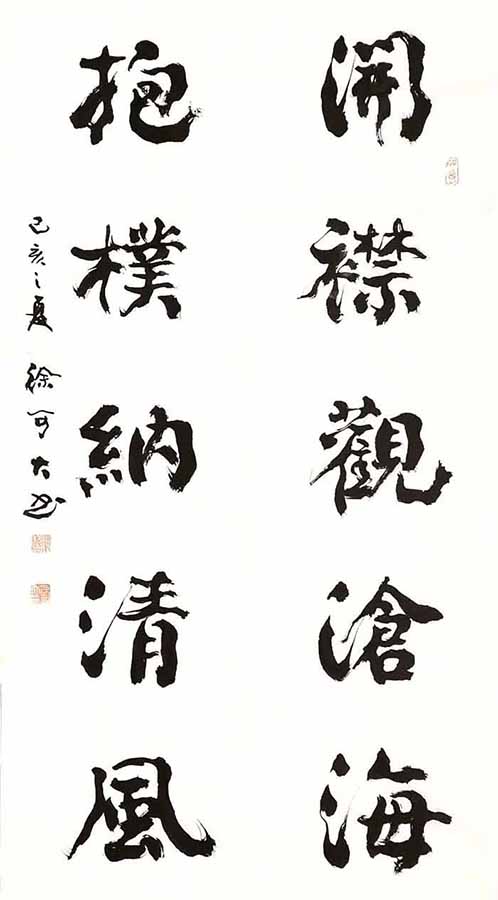 開襟觀滄海
抱樸納清風
己亥之夏 徐可大书